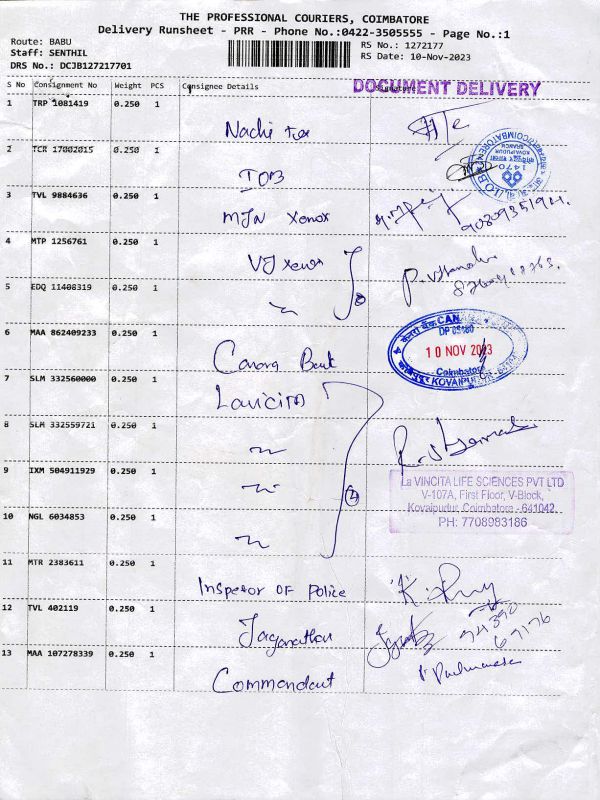 THE PROFESSIONAL COURIERS, COIMBATORE
Delivery Runsheet - PRR - Phone No.:0422-3505555 - Page No.:1
Route: BABU
Staff: SENTHIL
DRS No.: DCJB127217701
RS No.: 1272177
RS Date: 10-Nov-2023
S No Consignment No Weight PCS Consignee Details Signature
DOCUMENT DELIVERY
1 TRP 1081419 0.250 1
2 TCR 17002015 0.250 1
IOB
3 TVL 9884636 0.250 1
MJN Xerox
4 MTP 1256761 0.250 1
VJ Xerox
5 EDQ 11408319 0.250 1
6 MAA 862409233 0.250 1
Canara Bank
CAN
DP 05180
10 NOV 2023
Coimbatore
KOVAIPUR
7 SLM 332560000 0.250 1
8 SLM 332559721 0.250 1
9 IXM 504911929 0.250 1
La VINCITA LIFE SCIENCES PVT LTD
V-107A, First Floor, V-Block,
Kovaipudur, Coimbatore - 641042.
PH: 7708983186
④
10 NGL 6034853 0.250 1
11 MTR 2383611 0.250 1
Inspetor OF Police
12 TVL 402119 0.250 1
Jaganathan
94390
67176
13 MAA 107278339 0.250 1
Commandant